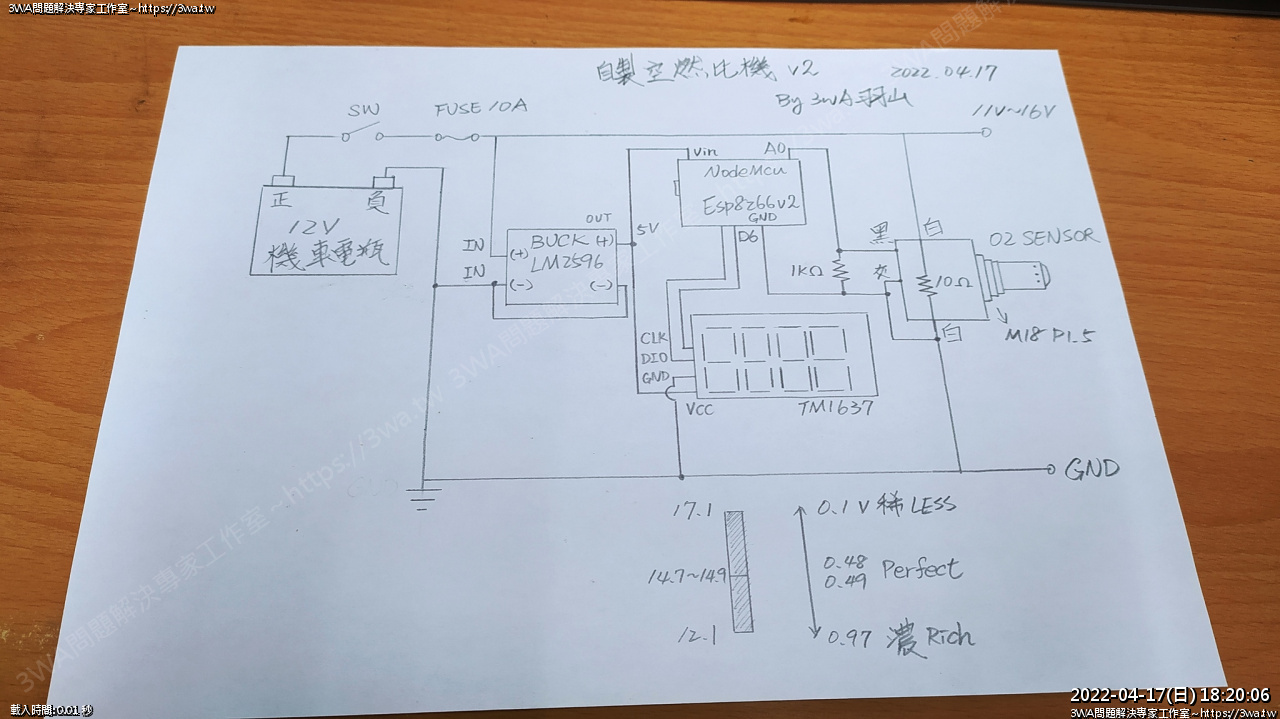 3WA問題解決專家工作室~https://3wa.tw
自製空燃比機 v2
2022.04.17
By 3WA羽山
SW
FUSE 10A
11V~16V
正
負
12V
機車電瓶
IN
IN
OUT
(+) BUCK (+)
LM2596
(-) (-)
5V
Vin A0
NodeMcu
Esp8266v2
GND
D6
1KΩ
黑
白
灰
10Ω
白
O2 SENSOR
M18 P1.5
CLK
DIO
GND
VCC
TM1637
GND
17.1
14.7~14.9
12.1
0.1V 稀 LESS
0.48
0.49 Perfect
0.97 濃 Rich
3WA問題解決專家工作室~https://3wa.tw
2022-04-17(日) 18:20:06
載入時間:0.01 秒
3WA問題解決專家工作室~https://3wa.tw